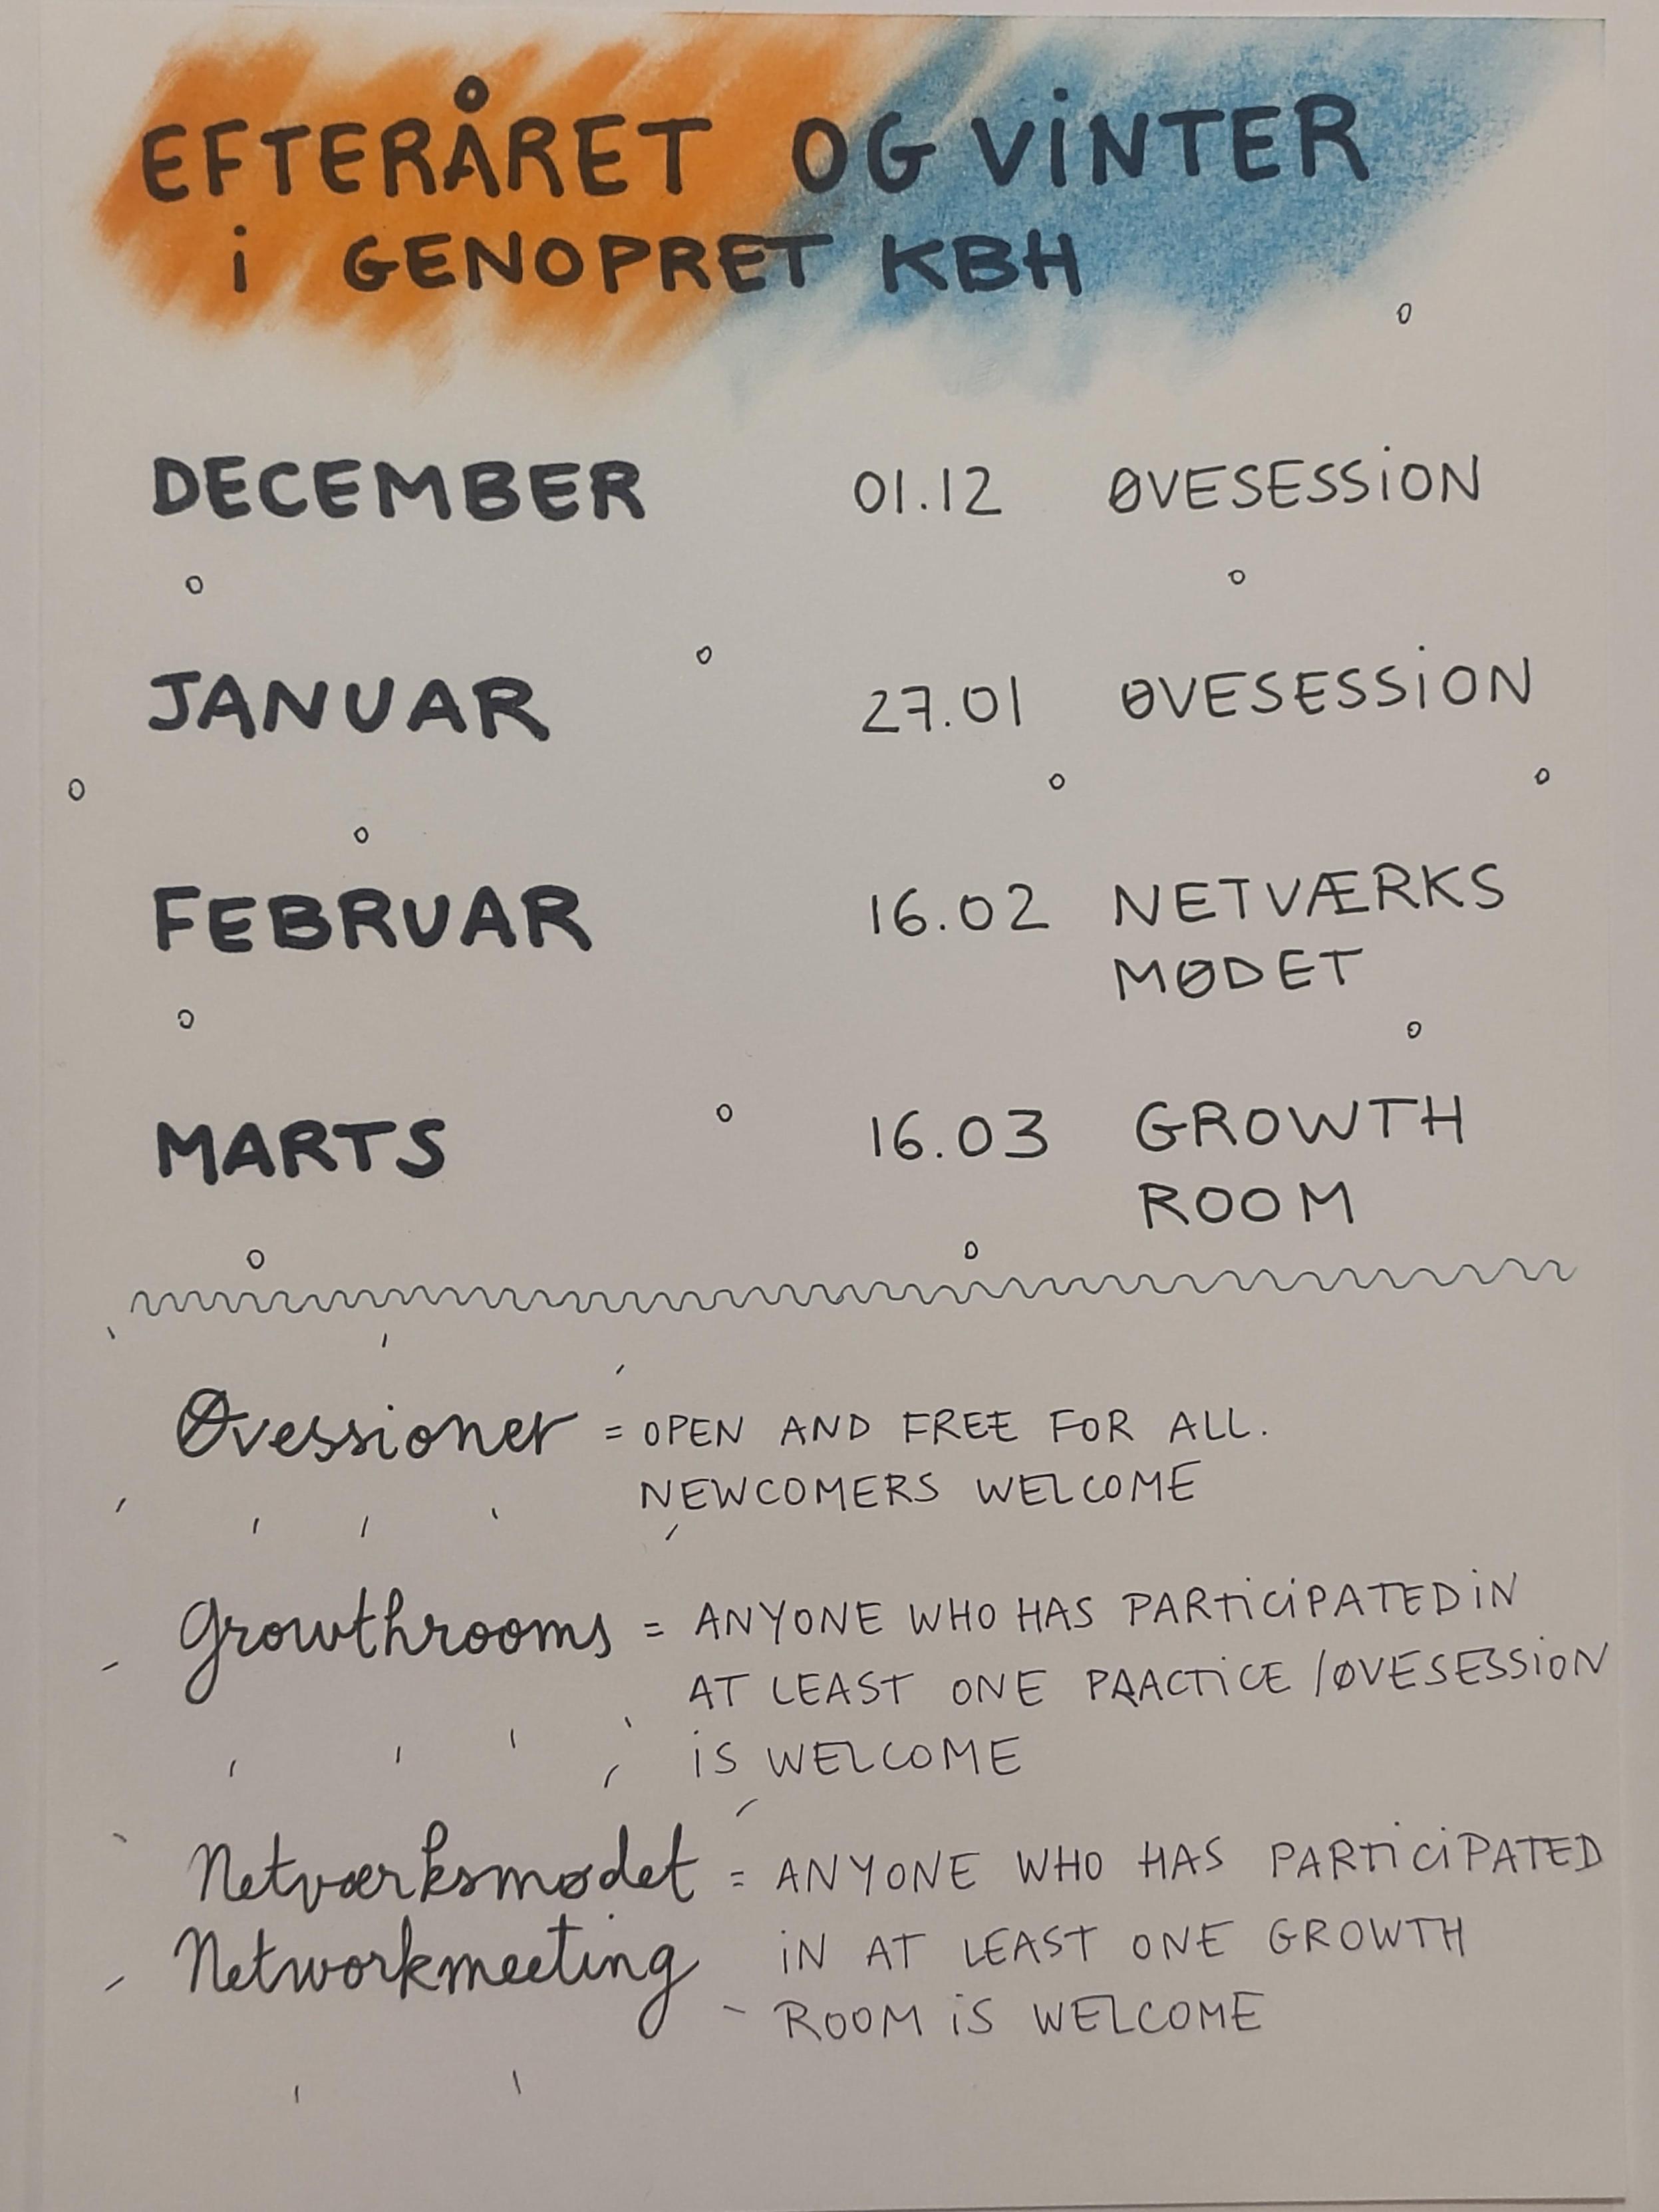 EFTERÅRET OG VINTER
i GENOPRET KBH
DECEMBER 01.12 ØVESESSION
JANUAR 27.01 ØVESESSION
FEBRUAR 16.02 NETVÆRKS
MØDET
MARTS 16.03 GROWTH
ROOM
Øvessioner = OPEN AND FREE FOR ALL.
NEWCOMERS WELCOME
Growthrooms = ANYONE WHO HAS PARTICIPATED IN
AT LEAST ONE PRACTICE / ØVESESSION
IS WELCOME
Netværksmødet = ANYONE WHO HAS PARTICIPATED
Networkmeeting IN AT LEAST ONE GROWTH
ROOM IS WELCOME